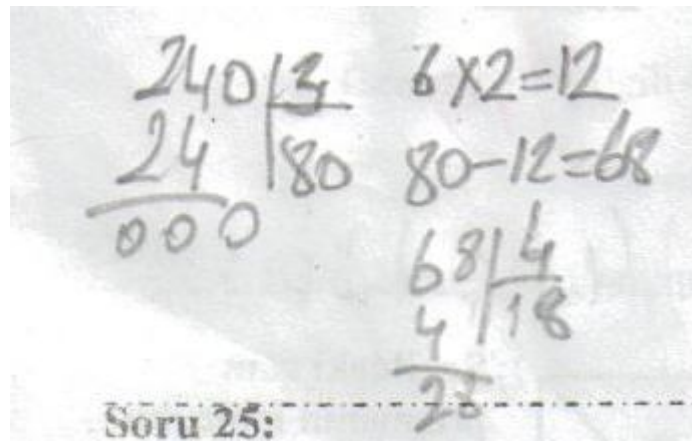 240 | 3
24 | 80
000
6x2=12
80-12=68
68 | 4
4 | 18
28
Soru 25: